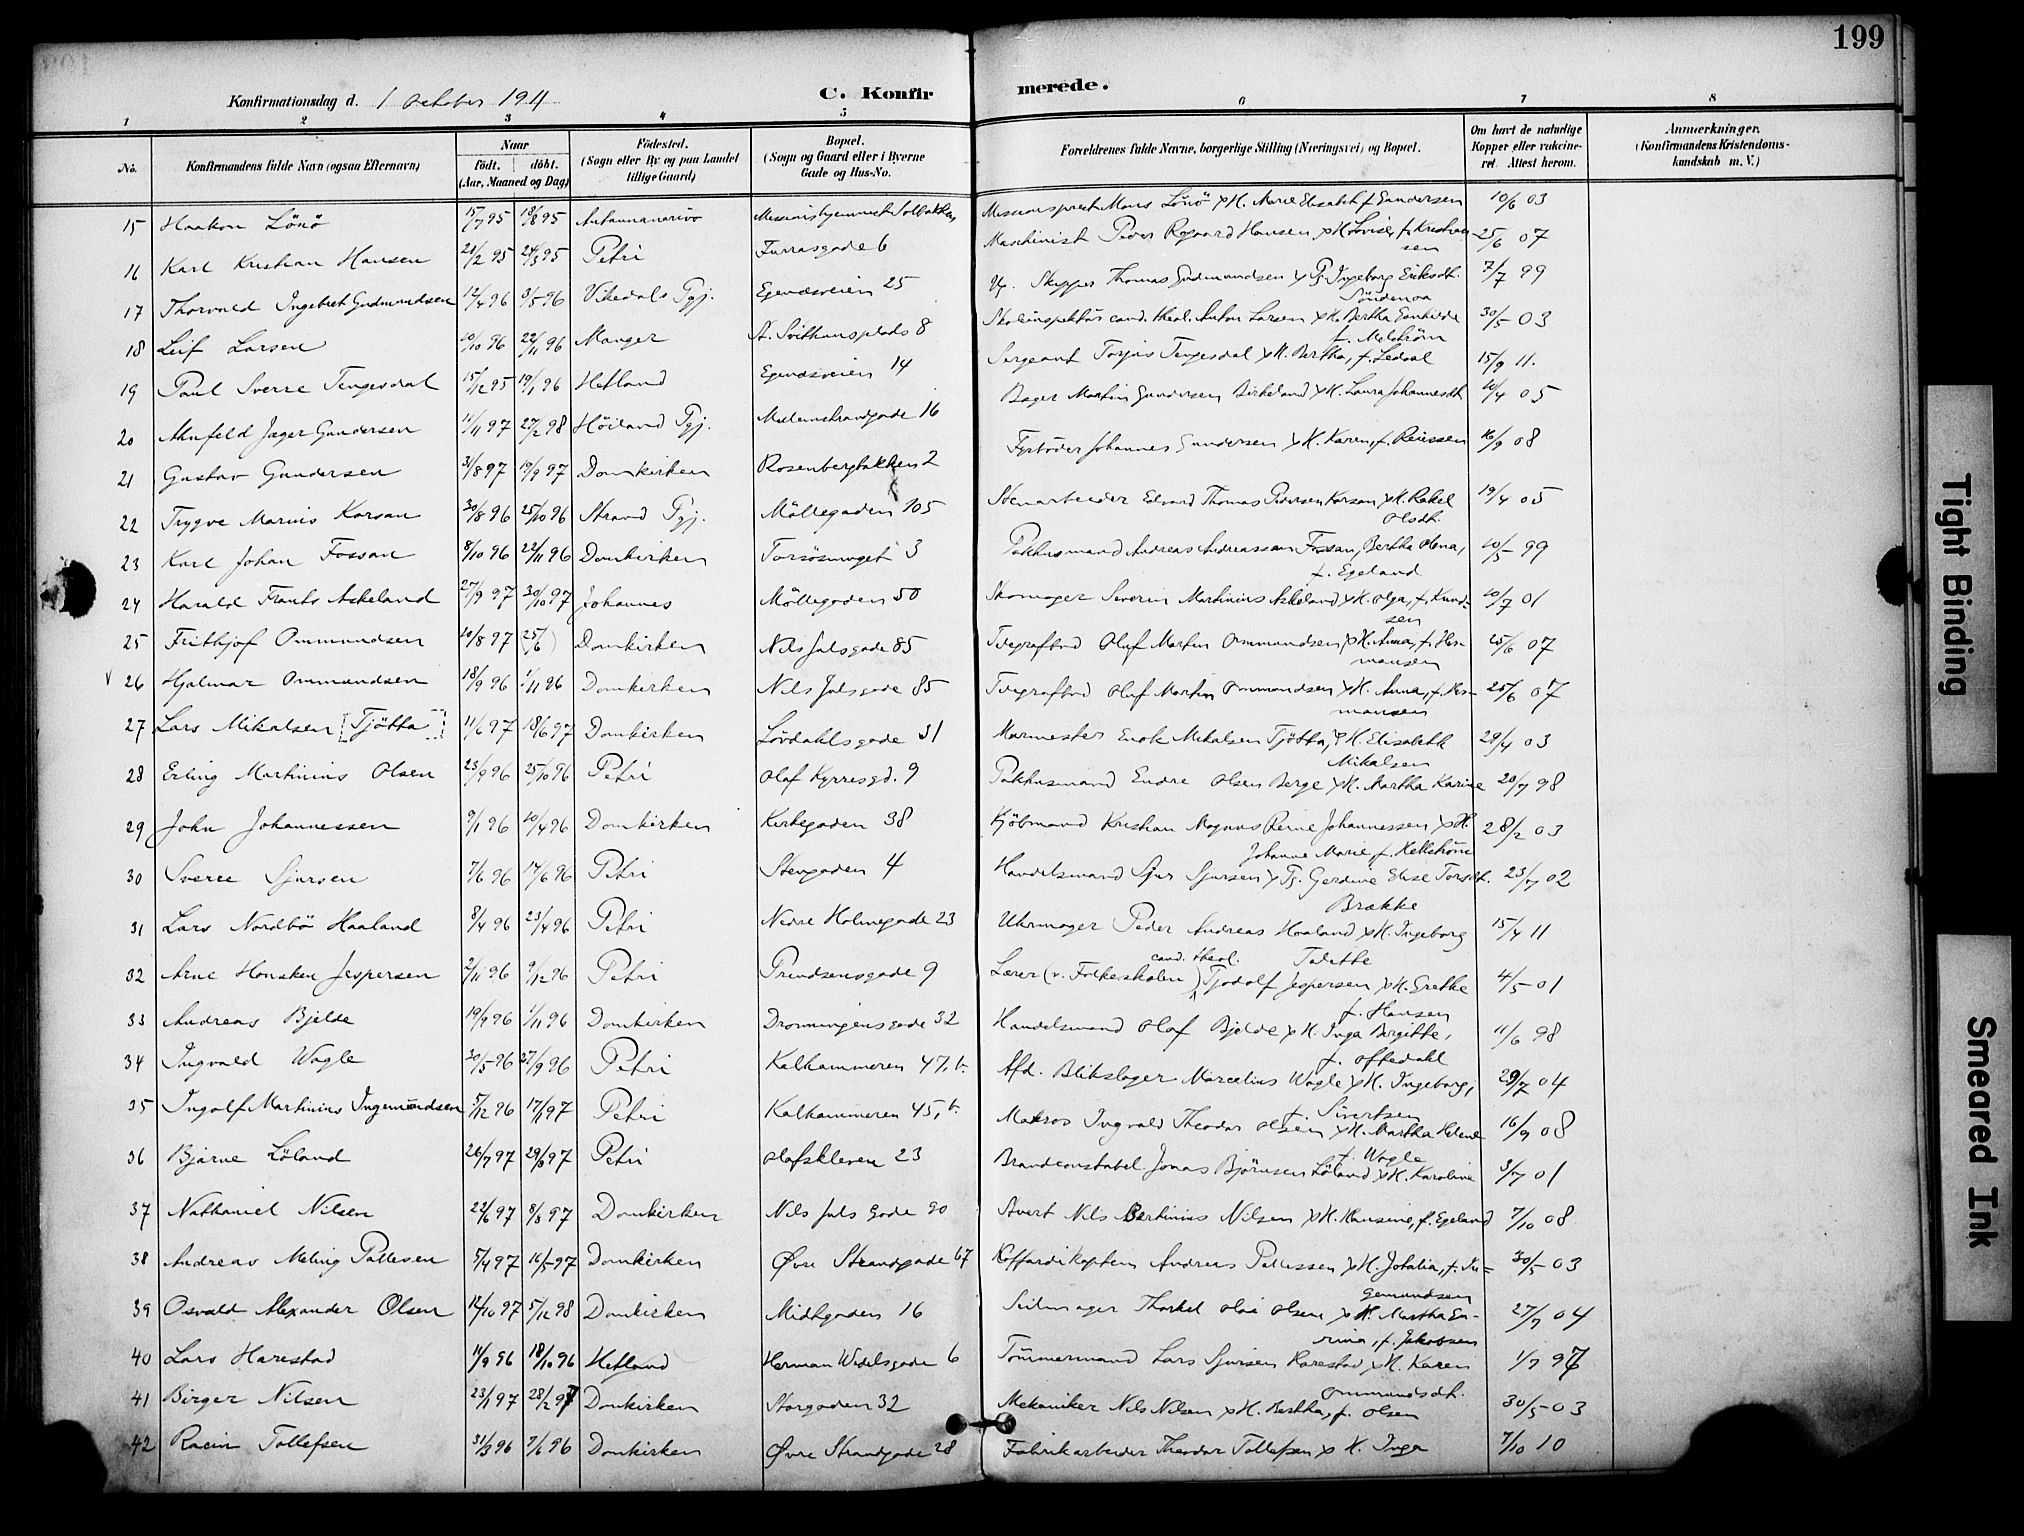 199
Konfirmationsdag d. 1 october 1911
C. Konfirmerede.
1 2 3 4 5 6 7 8
No.
Konfirmandens fulde Navn (ogsaa Efternavn)
Naar
födt. döbt.
(Aar, Maaned og Dag)
Födested.
(Sogn eller By og paa Landet
tillige Gaard)
Bopæl.
(Sogn og Gaard eller i Byerne
Gade og Hus-No.
Forældrenes fulde Navne, borgerlige Stilling (Næringsvei) og Bopæl.
Om havt de naturlige
Kopper eller vakcine-
ret. Attest herom.
Anmærkninger.
(Konfirmandens Kristendoms-
kundskab m. V.)
15 Haakon Lönö 15/7 95 18/8 95 Antananarivo Missionsprest Mons Lönö x H. Marie Elisabeth f. Gundersen 10/6 03
16 Karl Kristian Hansen 21/2 95 24/3 95 Petri Furrasgade 6 Maschinist Peder Rogaard Hansen x H. Lovise, f. Kristian-
sen 25/6 07
17 Thorvald Ingebret Gudmundsen 12/4 96 3/5 96 Vikedals Pgj. Egenæsveien 25 Skipper Thomas Gudmundsen x Pg. Ingeborg Eriksdt.
Söndenaa 7/7 99
18 Leif Larsen 20/10 96 22/11 96 Manger St. Svithunsplads 8 Skoleinspektör cand. theol. Anton Larsen x H. Bertha Gunhilde
f. Melström 30/5 03
19 Paul Sverre Tengesdal 15/12 95 19/1 96 Hetland Egenæsveien 14 Sergeant Torjus Tengesdal x H. Bertha, f. Ledaal 15/9 11.
20 Anfeld Jæger Gundersen 11/11 97 27/2 98 Höiland Pgj. Muleumstrandgade 16 Bager Martin Gundersen Birkeland x H. Laura Johannesdt. 20/4 05
21 Gustav Gundersen 31/8 97 19/9 97 Domkirken Rosenbergbakken 2 Fyrböder Johannes Gundersen x H. Karen, f. Reiersen 16/9 08
22 Trygve Marius Korsan 30/8 96 25/10 96 Strand Pgj. Möllegaden 105 Stenarbeider Edvard Thomas Pedersen Korsan x H. Rakel
Olsdt. 19/4 05
23 Karl Johan Fossan 8/10 96 22/11 96 Domkirken 3 Pakhusmand Andreas Andreassen Fossan, Bertha Olena,
f. Egeland 20/5 99
24 Harald Frants Askeland 27/9 97 30/10 97 Johannes Möllegaden 50 Skomager Severin Martinius Askeland x H. Olga, f. Knud-
sen 20/7 01
25 Frithjof Ommundsen 20/8 97 25/6) Domkirken Nils Julsgade 85 Telegrafbud Oluf Martin Ommundsen x H. Anna, f. Her-
mansen 25/6 07
V 26 Hjalmar Ommundsen 18/9 96 1/11 96 Domkirken Nils Julsgade 85 Telegrafbud Oluf Martin Ommundsen x H. Anna, f. Her-
mansen 25/6 07
27 Lars Mikalsen [Tjötta] 11/6 97 18/6 97 Domkirken Lövdahlsgade 31 Murmester Enok Mikalsen Tjötta, x H. Elisabeth
Mikalsen 29/4 03
28 Erling Martinius Olsen 23/9 96 25/10 96 Petri Olaf Kyrresgd. 9 Pakhusmand Endre Olsen Berge x H. Martha Karine 20/7 98
29 John Johannessen 9/1 96 20/4 96 Domkirken Kirkegaden 38 Kjöbmand Kristian Magnus Reine Johannessen x H.
Johanne Marie, f. Hellström 28/2 03
30 Sverre Sjursen 7/6 96 17/6 96 Petri Stengaden 4 Handelsmand Sjur Sjursen x Pg. Gerdine Elise Torsdt.
Brække 23/7 02
31 Lars Nordbö Haaland 8/4 96 23/4 96 Petri Nedre Holmegade 23 Uhrmager Peder Andreas Haaland x H. Ingeborg
Talette 15/4 11
32 Arne Honsken Jespersen 2/11 96 9/12 96 Petri Prindsensgade 9 Lærer (v. Folkeskolen) cand. theol. Tjodolf Jespersen x H. Grethe
f. Hansen 4/5 01
33 Andreas Bjelde 19/9 96 1/11 96 Domkirken Dronningensgade 32 Handelsmand Olaf Bjelde x H. Inga Birgitte,
f. Oftedahl 11/6 98
34 Ingvald Wagle 30/5 96 27/9 96 Petri Kalhammeren 47, b. Afd. Blikslager Marcelius Wagle x H. Ingeborg,
f. Sivertsen 29/7 04
35 Ingolf Martinius Ingemundsen 5/12 96 17/1 97 Petri Kalhammeren 45, b. Matros Ingvald Theodor Olsen x H. Martha Helene
f. Wagle 16/9 08
36 Bjarne Löland 26/7 97 29/8 97 Petri Olafskleven 23 Brandconstabel Jonas Björnsen Löland x H. Karoline 3/7 01
37 Nathaniel Nilsen 22/6 97 8/8 97 Domkirken Nils Juls Gade 90 Nils Bertinius Nilsen x H. Hansine, f. Egeland 7/10 08
38 Andreas Meling Pallesen 5/4 97 16/5 97 Domkirken Øvre Strandgade 67 Koffardikaptein Andreas Pallesen x H. Jotalia, f. In-
gemundsen 30/5 03
39 Osvald Alexander Olsen 12/10 97 5/12 98 Domkirken Midtgaden 16 Seilmager Thorkel Olai Olsen x H. Martha En-
rina, f. Jakobsen 27/7 04
40 Lars Harestad 11/9 96 18/10 96 Hetland Herman Wedelsgade 6 Tömmermand Lars Sjursen Harestad x H. Karen
Ommundsdt. 1/7 97
41 Birger Nilsen 23/1 97 28/2 97 Domkirken Storgaden 32 Mekaniker Nils Nilsen x H. Bertha, f. Olsen 30/5 03
42 Racin Tollefsen 31/3 96 7/6 96 Domkirken Øvre Strandgade 28 Fabrikarbeider Theodor Tollefsen x H. Inga 7/10 10
Tight Binding
Smeared Ink